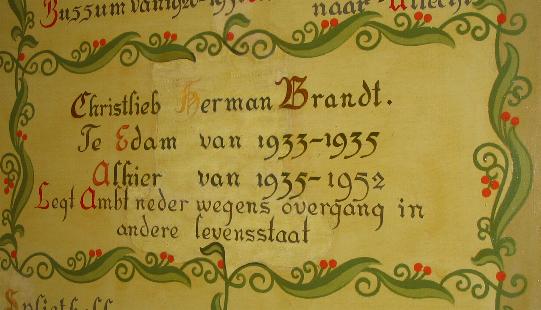 Bussum van 1920-19
naar Utrecht
Christlieb Herman Brandt.
Te Edam van 1933-1935
Alhier van 1935-1952
Legt Ambt neder wegens overgang in
andere levensstaat